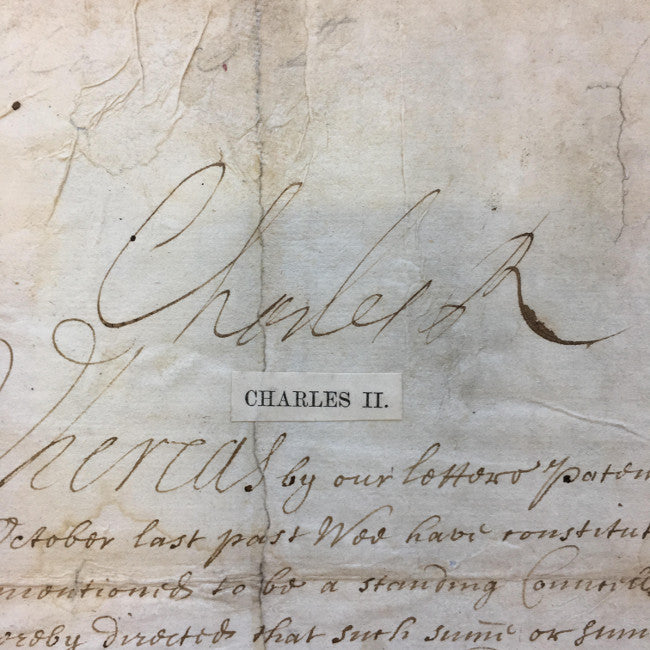 Charles R
CHARLES II.
Whereas by our letters Paten
October last past Wee have constitut
mentioned to be a standing Councell
hereby directed that such sume or sum